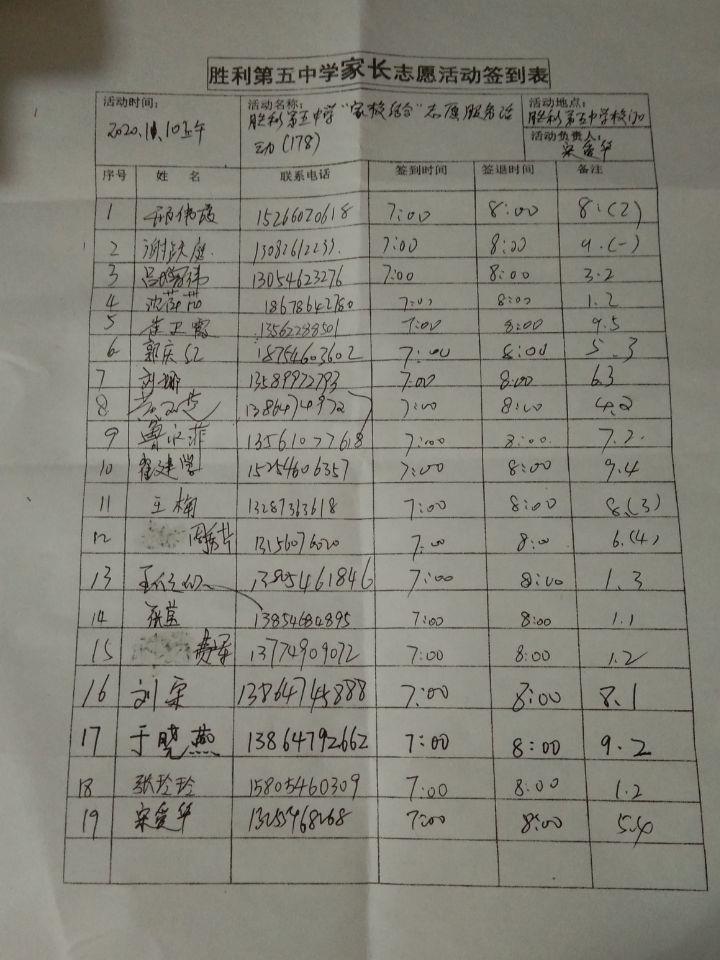 胜利第五中学家长志愿活动签到表
活动时间: 活动名称: 活动地点:
2020.11.10上午 胜利第五中学"家校结合"志愿服务活动(178) 胜利第五中学校门口
活动负责人:
宋爱华
序号 姓名 联系电话 签到时间 签退时间 备注
1 15266020618 7:00 8:00 8.(2)
2 7:00 8:00 9.(一)
3 13054623276 7:00 8:00 3.2
4 18678642780 7:00 8:00 1.2
5 13562288501 7:00 8:00 9.5
6 郭庆红 18754603602 7:00 8:00 5.3
7 刘娜 13589972793 7:00 8:00 6.3
8 7:00 8:00 4.2
9 13561077618 7:00 8:00 7.2
10 15254606357 7:00 8:00 9.4
11 王梅 13287363618 7:00 8:00 8.(3)
12 13156076020 7:00 8:00 6.(4)
13 13805461846 7:00 8:00 1.3
14 13854684895 7:00 8:00 1.1
15 13774909072 7:00 8:00 1.2
16 刘宗 13864714888 7:00 8:00 8.1
17 于晓燕 13864792662 7:00 8:00 9.2
18 张玲玲 15805460309 7:00 8:00 1.2
19 宋爱华 13255468268 7:00 8:00 5.4